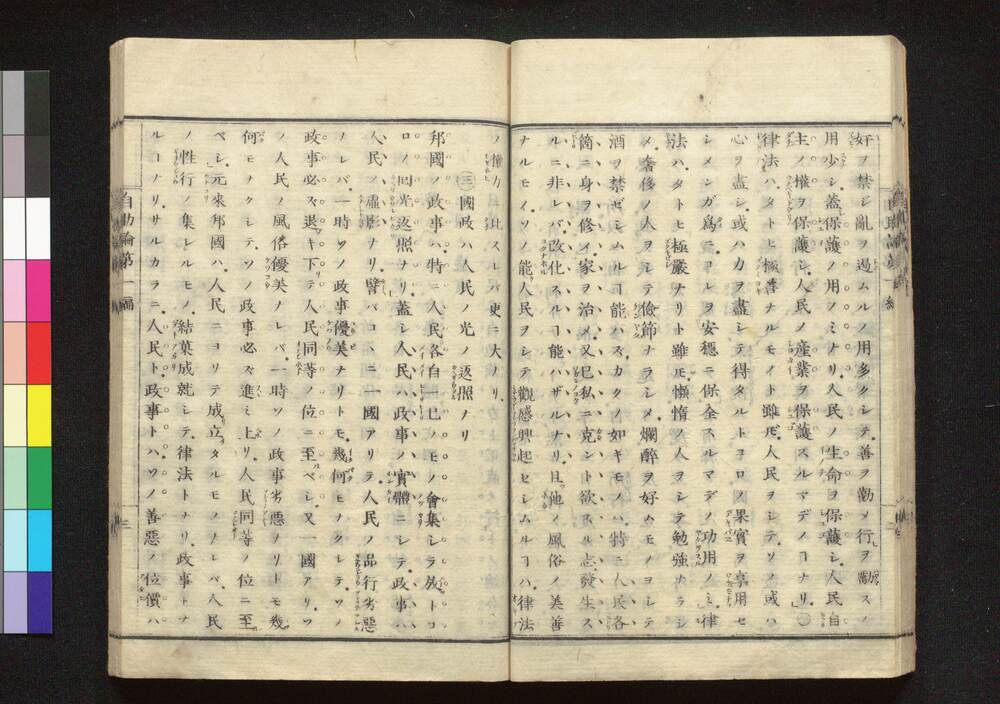 奸ヲ禁ジ亂ヲ遏ムルノ用多クシテ、善ヲ勸メ行ヲ勵スノ
用少シ、蓋保護ノ用ノミナリ、人民ノ生命ヲ保護シ、人民自
主ノ權ヲ保護シ、人民ノ産業ヲ保護スルマデノヿナリ、○
律法ハ、タトヒ極善ナルモノイト雖𪜈、人民ヲシテ、ソノ或ハ
心ヲ盡シ、或ハ力ヲ盡シテ得タルトコロノ果實ヲ享用セ
シメンガ爲ニ、コレヲ安穩ニ保全スルマデノ功用ノミ、律
法ハ、タトヒ極嚴ナリト雖𪜈、懶惰ノ人ヲシテ勉強ナラシ
メ、奢侈ノ人ヲシテ儉節ナラシメ、爛醉ヲ好ムモノヲシテ
酒ヲ禁ゼシムルヿ能ハズ、カクノ如キモノハ、特ニ人民各
箇ニ身ヲ修メ、家ヲ治メ、又己私ニ克ント欲スル志發生ス
ルニ非レバ、改化スルヿ能ハザルナリ、且他ノ風俗ノ美善
ナルモイソノ能人民ヲシテ觀感興起セシムルヿハ、律法
ノ權力ニ比スレバ更ニ大ナリ、
㊂國政ハ人民ノ光ノ返照ナリ
邦國ノ政事ハ、特ニ人民各自一己ノモノ會集シテ放トコ
ロノ回光返照ナリ、蓋シ人民ハ政事ノ實體ニシテ、政事ハ
人民ノ虛影ナリ、譬バコヽニ一國アリテ、人民ノ品行劣惡
ナレバ、一時ソノ政事優美ナリトモ、幾何モナクシテ、ソノ
政事必ズ退キ下テ、人民同等ノ位ニ至ベシ、又一國アリ、ソ
ノ人民ノ風俗優美ナレバ、一時ソノ政事劣惡ナリトモ、幾
何モナクシテ、ソノ政事必ズ進ミ上リ、人民同等ノ位ニ至
ベシ、元來邦國ハ、人民ニヨリテ成立タルモノナレバ、人民
ノ性行ノ集レルモノ、結菓成就シテ、律法トナリ、政事トナ
ルコナリ、サルカラニ、人民ト政事トハ、ソノ善惡ノ位價ハ
自助論第一編
三